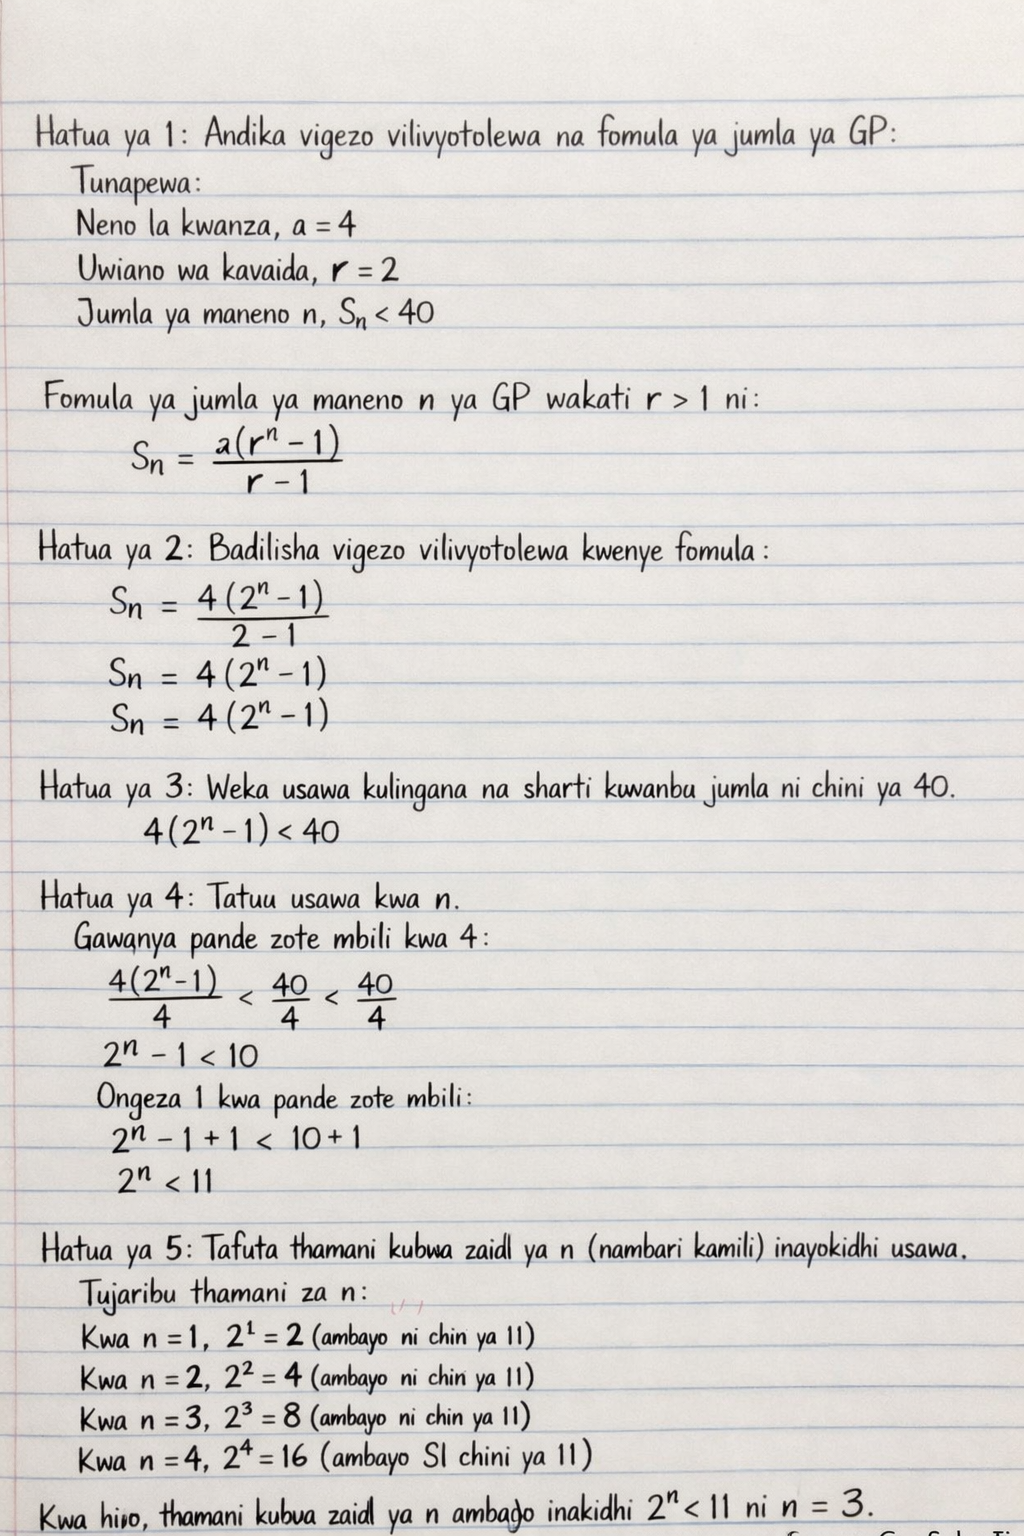 Hatua ya 1: Andika vigezo vilivyotolewa na fomula ya jumla ya GP:
Tunapewa:
Neno la kwanza, a = 4
Uwiano wa kavaida, r = 2
Jumla ya maneno n, Sₙ < 40
Fomula ya jumla ya maneno n ya GP wakati r > 1 ni:
Sₙ = a(rⁿ − 1) / r − 1
Hatua ya 2: Badilisha vigezo vilivyotolewa kwenye fomula:
Sₙ = 4(2ⁿ − 1) / 2 − 1
Sₙ = 4(2ⁿ − 1)
Sₙ = 4(2ⁿ − 1)
Hatua ya 3: Weka usawa kulingana na sharti kuwanbu jumla ni chini ya 40.
4(2ⁿ − 1) < 40
Hatua ya 4: Tatuu usawa kwa n.
Gawanya pande zote mbili kwa 4:
4(2ⁿ−1) / 4 < 40 / 4 < 40 / 4
2ⁿ − 1 < 10
Ongeza 1 kwa pande zote mbili:
2ⁿ − 1 + 1 < 10 + 1
2ⁿ < 11
Hatua ya 5: Tafuta thamani kubwa zaidl ya n (nambari kamili) inayokidhi usawa.
Tujaribu thamani za n:
Kwa n = 1, 2¹ = 2 (ambayo ni chin ya 11)
Kwa n = 2, 2² = 4 (ambayo ni chin ya 11)
Kwa n = 3, 2³ = 8 (ambayo ni chin ya 11)
Kwa n = 4, 2⁴ = 16 (ambayo SI chini ya 11)
Kwa hivo, thamani kubua zaidl ya n ambago inakidhi 2ⁿ < 11 ni n = 3.